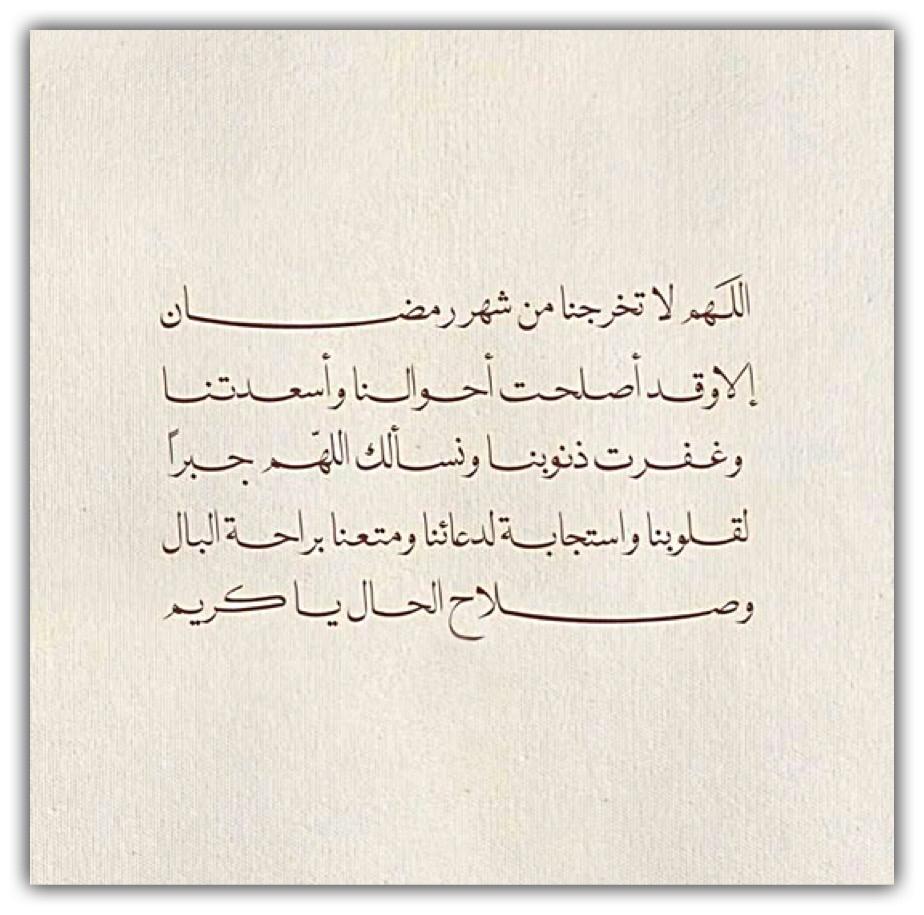 اللهم لا تخرجنا من شهر رمضان
إلا وقد أصلحت أحوالنا وأسعدتنا
وغفرت ذنوبنا ونسألك اللهّم جبراً
لقلوبنا واستجابة لدعائنا ومتعنا براحة البال
وصلاح الحال يا كريم